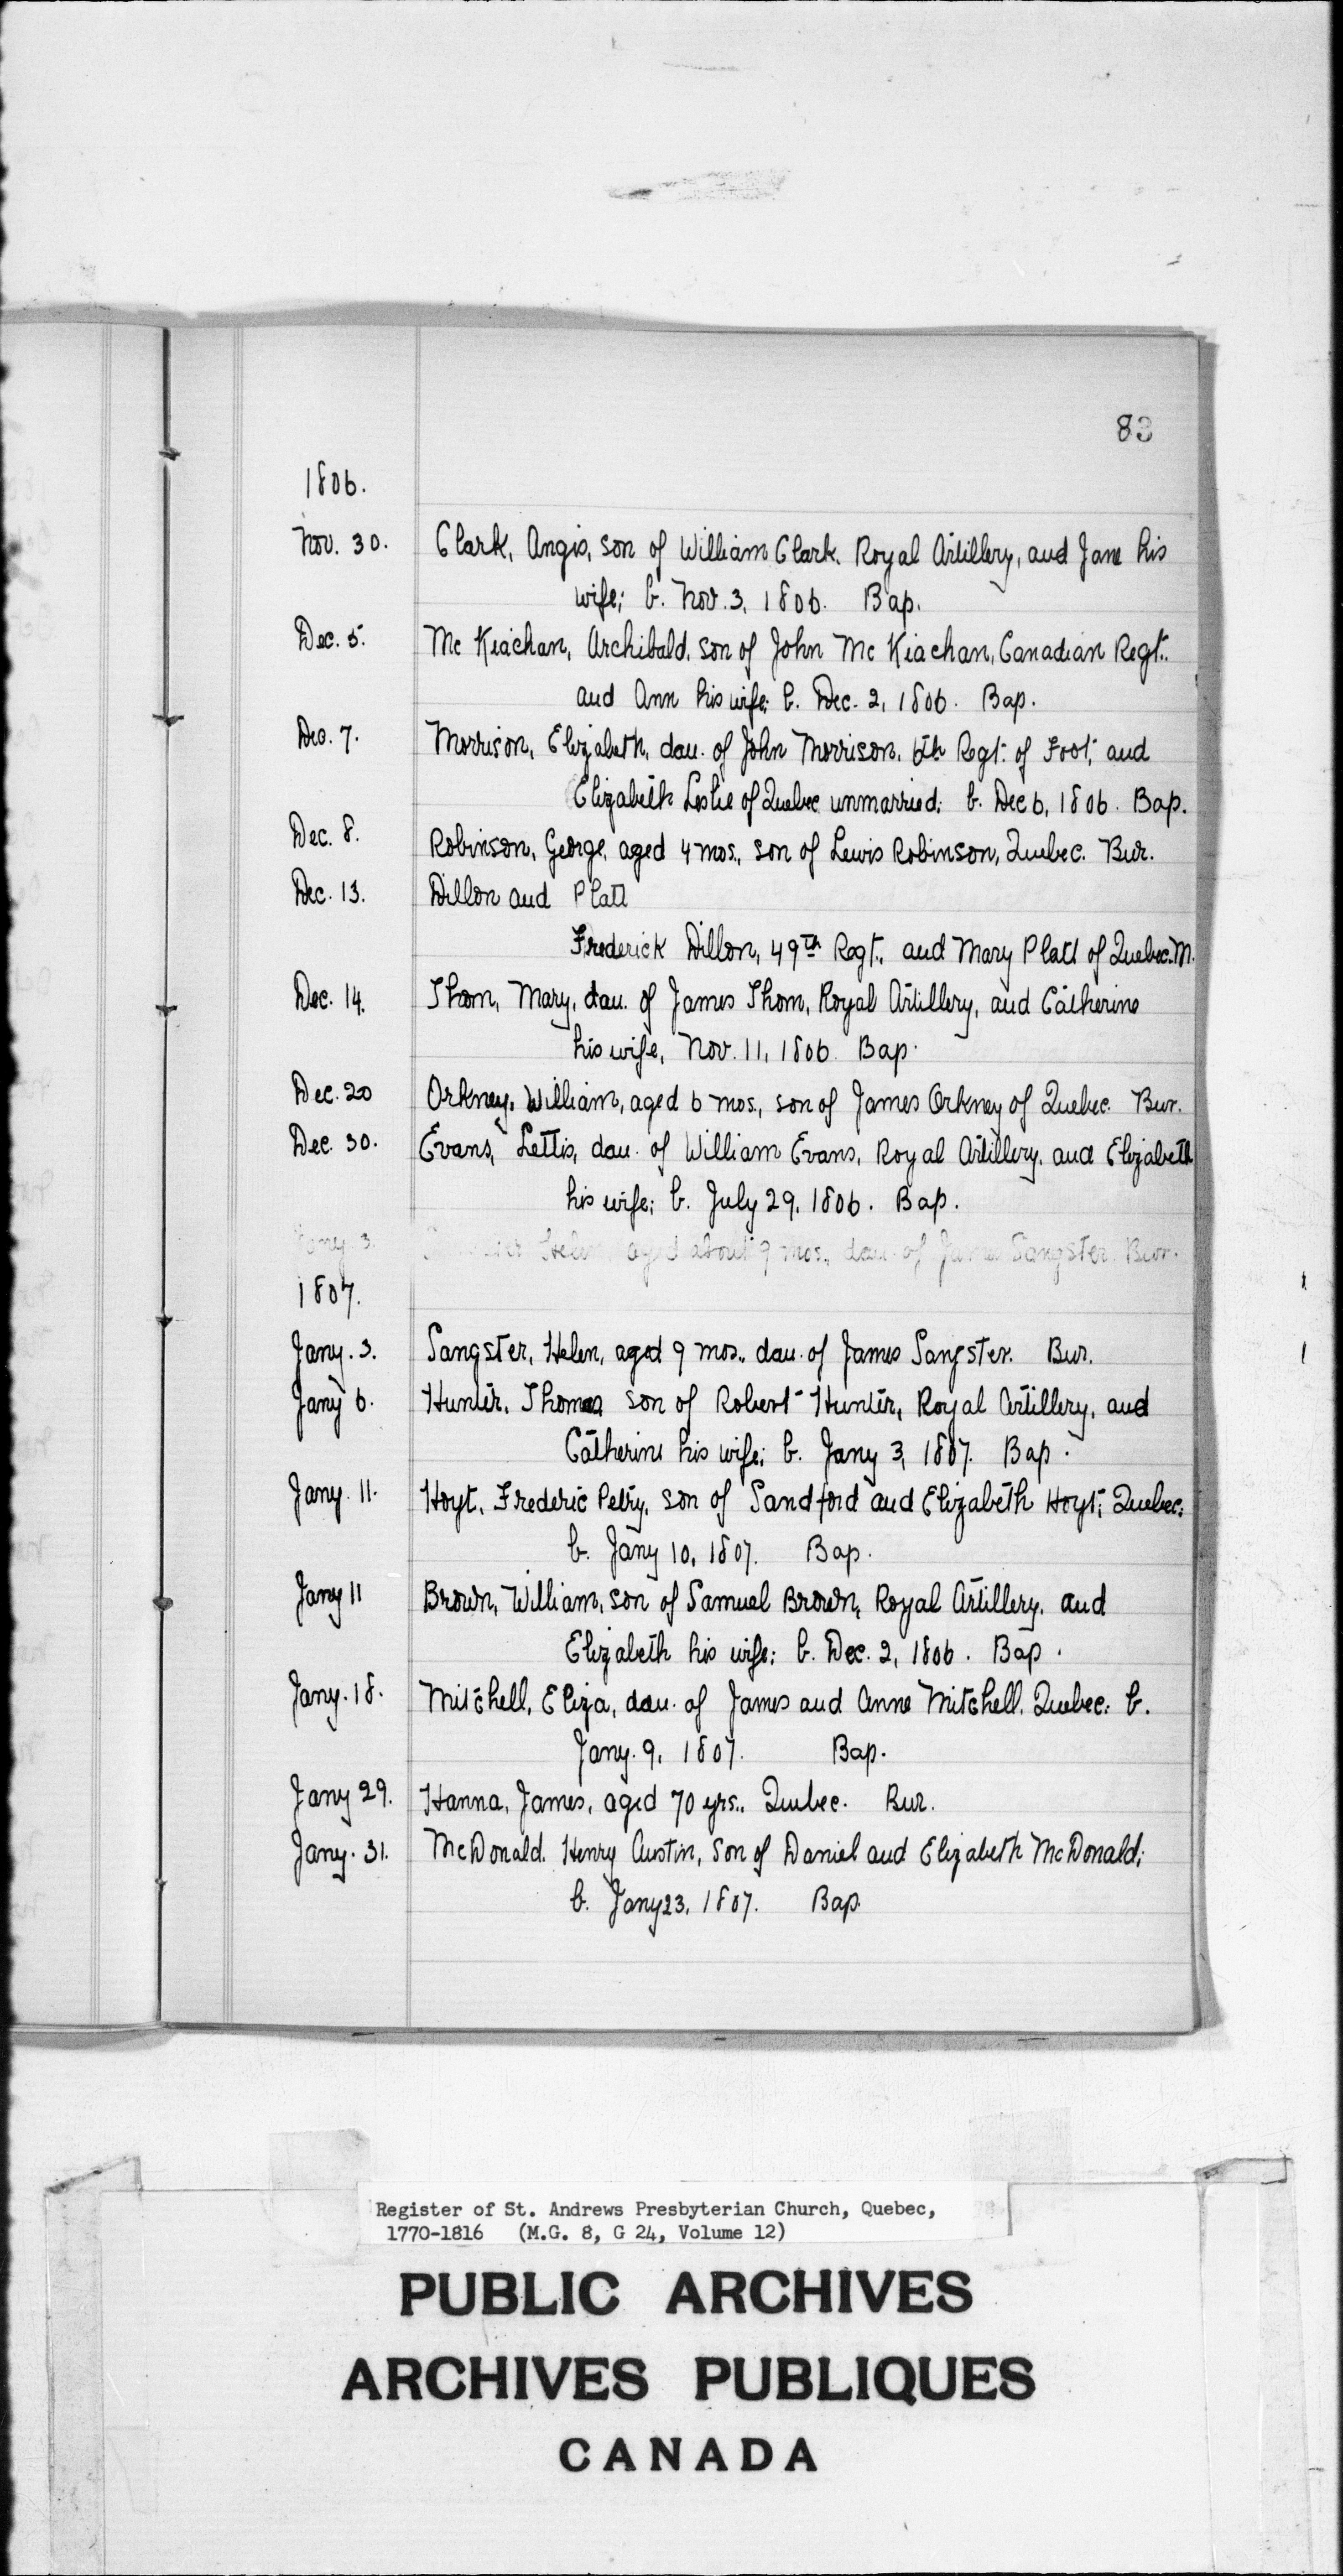 83
1806.
Nov. 30. Clark, Angis, son of William Clark, Royal Artillery, and Jane his
wife; b. Nov. 3, 1806. Bap.
Dec. 5. Mc Kiachan, Archibald, son of John Mc Kiachan, Canadian Regt.
and Ann his wife; b. Dec. 2, 1806. Bap.
Dec. 7. Morrison, Elizabeth, dau. of John Morrison, 6th Regt. of Foot, and
Elizabeth Leslie of Quebec unmarried; b. Dec 6, 1806. Bap.
Dec. 8. Robinson, George, aged 4 mos., son of Lewis Robinson, Quebec. Bur.
Dec. 13. Dillon and Platt
Frederick Dillon, 49th Regt., and Mary Platt of Quebec. M.
Dec. 14. Thom, Mary, dau. of James Thom, Royal Artillery, and Catherine
his wife, Nov. 11, 1806. Bap.
Dec. 20 Orkney, William, aged 6 mos., son of James Orkney of Quebec. Bur.
Dec. 30. Evans, Lettis, dau. of William Evans, Royal Artillery, and Elizabeth
his wife; b. July 29, 1806. Bap.
Jany. 3. Helen aged about 9 mos., dau. of James Sangster. Bur.
1807.
Jany. 3. Sangster, Helen, aged 9 mos., dau. of James Sangster. Bur.
Jany 6. Hunter, Thomas son of Robert Hunter, Royal Artillery, and
Catherine his wife; b. Jany 3, 1807. Bap.
Jany. 11. Hoyt, Frederic Petry, son of Sandford and Elizabeth Hoyt, Quebec;
b. Jany 10, 1807. Bap.
Jany 11 Brown, William, son of Samuel Brown, Royal Artillery, and
Elizabeth his wife; b. Dec. 2, 1806. Bap.
Jany. 18. Mitchell, Eliza, dau. of James and Anne Mitchell, Quebec; b.
Jany. 9, 1807. Bap.
Jany 29. Hanna, James, aged 70 yrs., Quebec. Bur.
Jany. 31. McDonald, Henry Austin, son of Daniel and Elizabeth McDonald;
b. Jany 23, 1807. Bap.
Register of St. Andrews Presbyterian Church, Quebec,
1770-1816 (M.G. 8, G 24, Volume 12)
PUBLIC ARCHIVES
ARCHIVES PUBLIQUES
CANADA